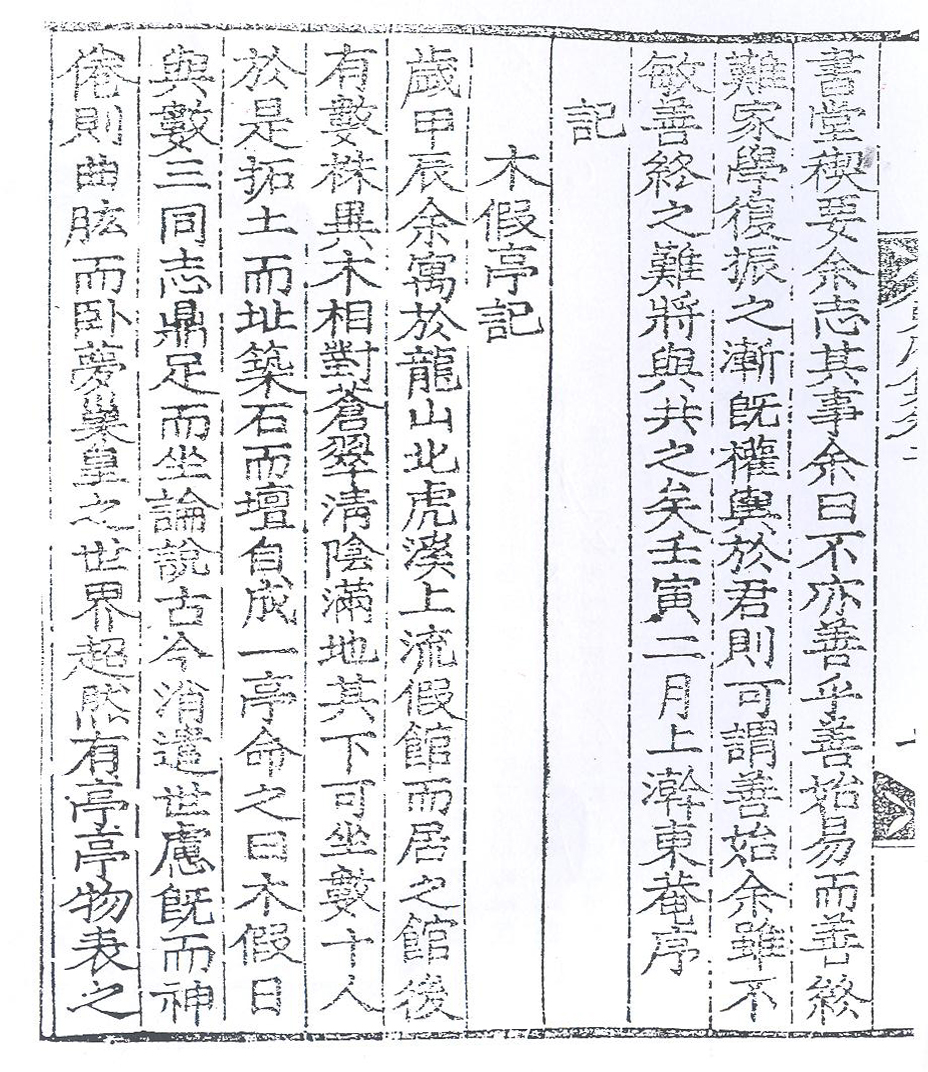 書堂稧要余志其事余曰不亦善乎善始易而善終
難家學復振之漸既權輿於君則可謂善始余雖不
敏善終之難將與共之矣壬寅二月上澣東菴序
記
木假亭記
歲甲辰余寓於龍山北虎溪上流假館而居之館後
有數株異木相對蒼翠淸陰滿地其下可坐數十人
於是拓土而址築石而壇自成一亭命之曰木假日
與數三同志鼎足而坐論說古今消遣世慮旣而神
倦則曲肱而卧夢巢皇之世界超然有亭亭物表之